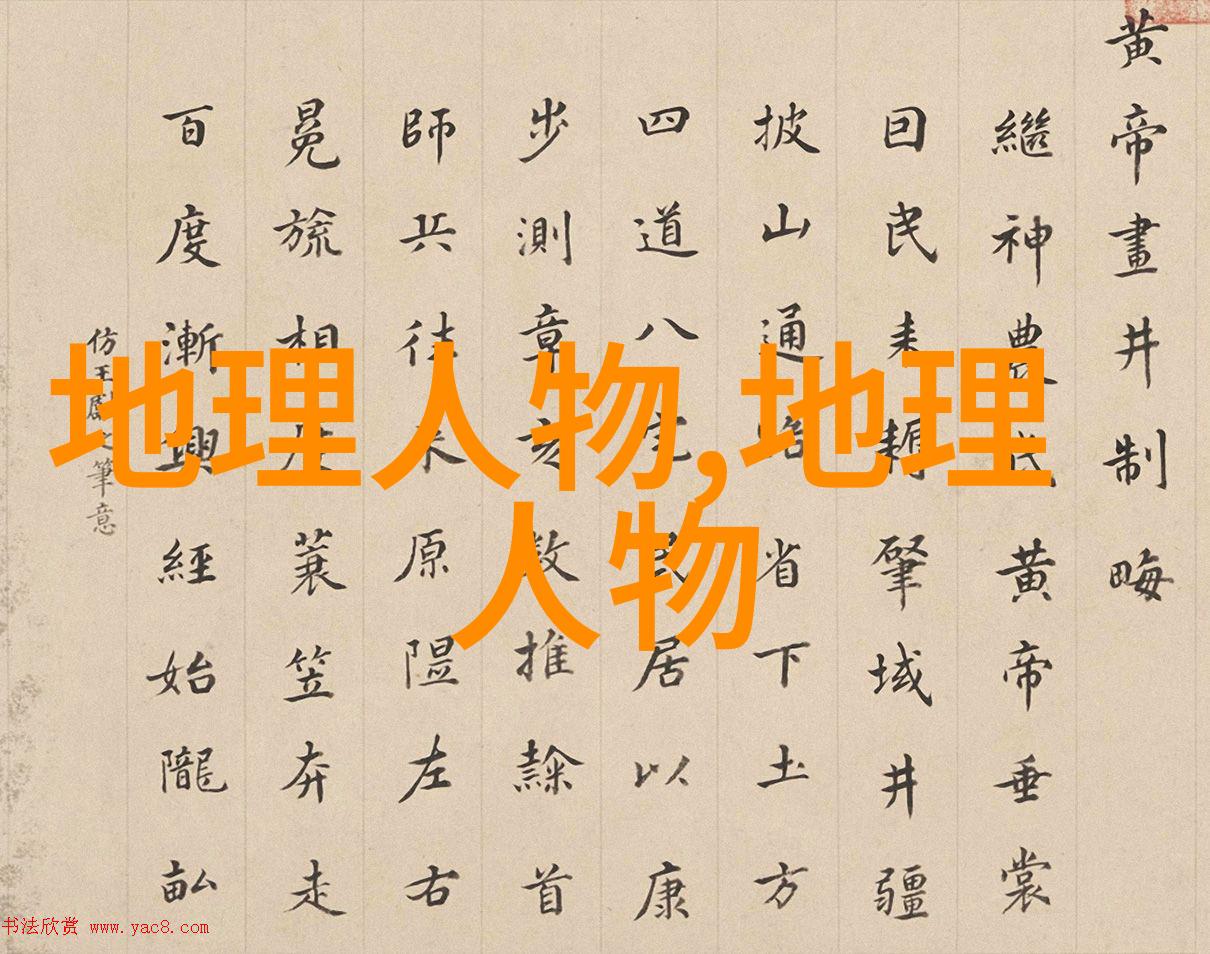 黄帝畫井制畮
繼神農氏黄帝垂裳
囙民耒耨肇域井疆
披山通路省下土方
四道八宅民居以康
步測章亥數推隸首
師兵往来原隰左右
冕旒相蓑笠奔走
百度漸興經始隴畝
仿王獻之筆意
地理人物,地理
人物
书法欣赏 www.yac8.com